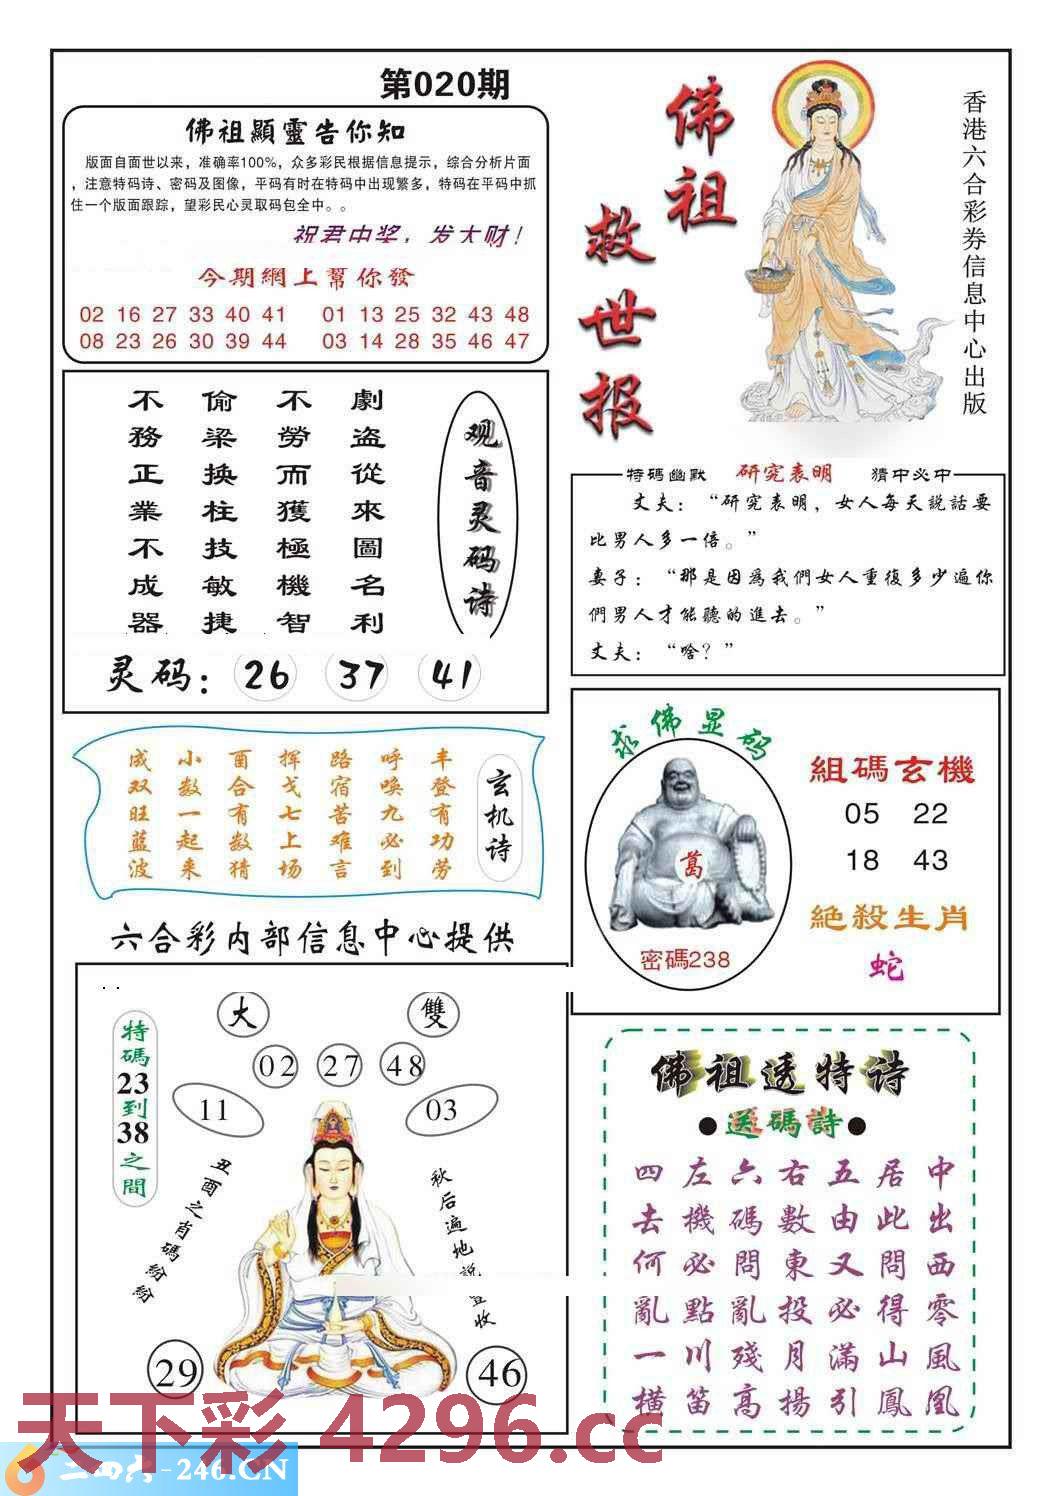 第020期
佛祖顯靈告你知
版面自面世以来，准确率100%，众多彩民根据信息提示，综合分析片面
，注意特码诗、密码及图像，平码有时在特码中出现繁多，特码在平码中抓
住一个版面跟踪，望彩民心灵取码包全中。。
祝君中奖，发大财！
今期網上幫你發
02 16 27 33 40 41 01 13 25 32 43 48
08 23 26 30 39 44 03 14 28 35 46 47
佛祖
救世报
香港六合彩券信息中心出版
观音灵码诗
劇盗從來圖名利
不勞而獲極機智
偷梁换柱技敏捷
不務正業不成器
灵码：26 37 41
特碼幽默 研究表明 猜中必中
丈夫：“研究表明，女人每天説話要
比男人多一倍。”
妻子：“那是因爲我們女人重復多少遍你
們男人才能聽的進去。”
丈夫：“啥？”
玄机诗
丰登有功劳
呼唤九必到
路宿苦难言
挥戈七上场
酉合有数猜
小数一起来
成双旺蓝波
求佛显码
萬
密碼238
組碼玄機
05 22
18 43
絕殺生肖
蛇
六合彩内部信息中心提供
特碼23到38之間
大 雙
02 27 48
11 03
丑酉之肖碼紛紛
秋后遍地説豐收
29 46
佛祖透特诗
●送碼詩●
中出西零風凰
居此問得山鳳
五由又必滿引
右數東投月揚
六碼問亂殘高
左機必點川笛
四去何亂一横
天下彩 4296.cc
二四六-246.CN